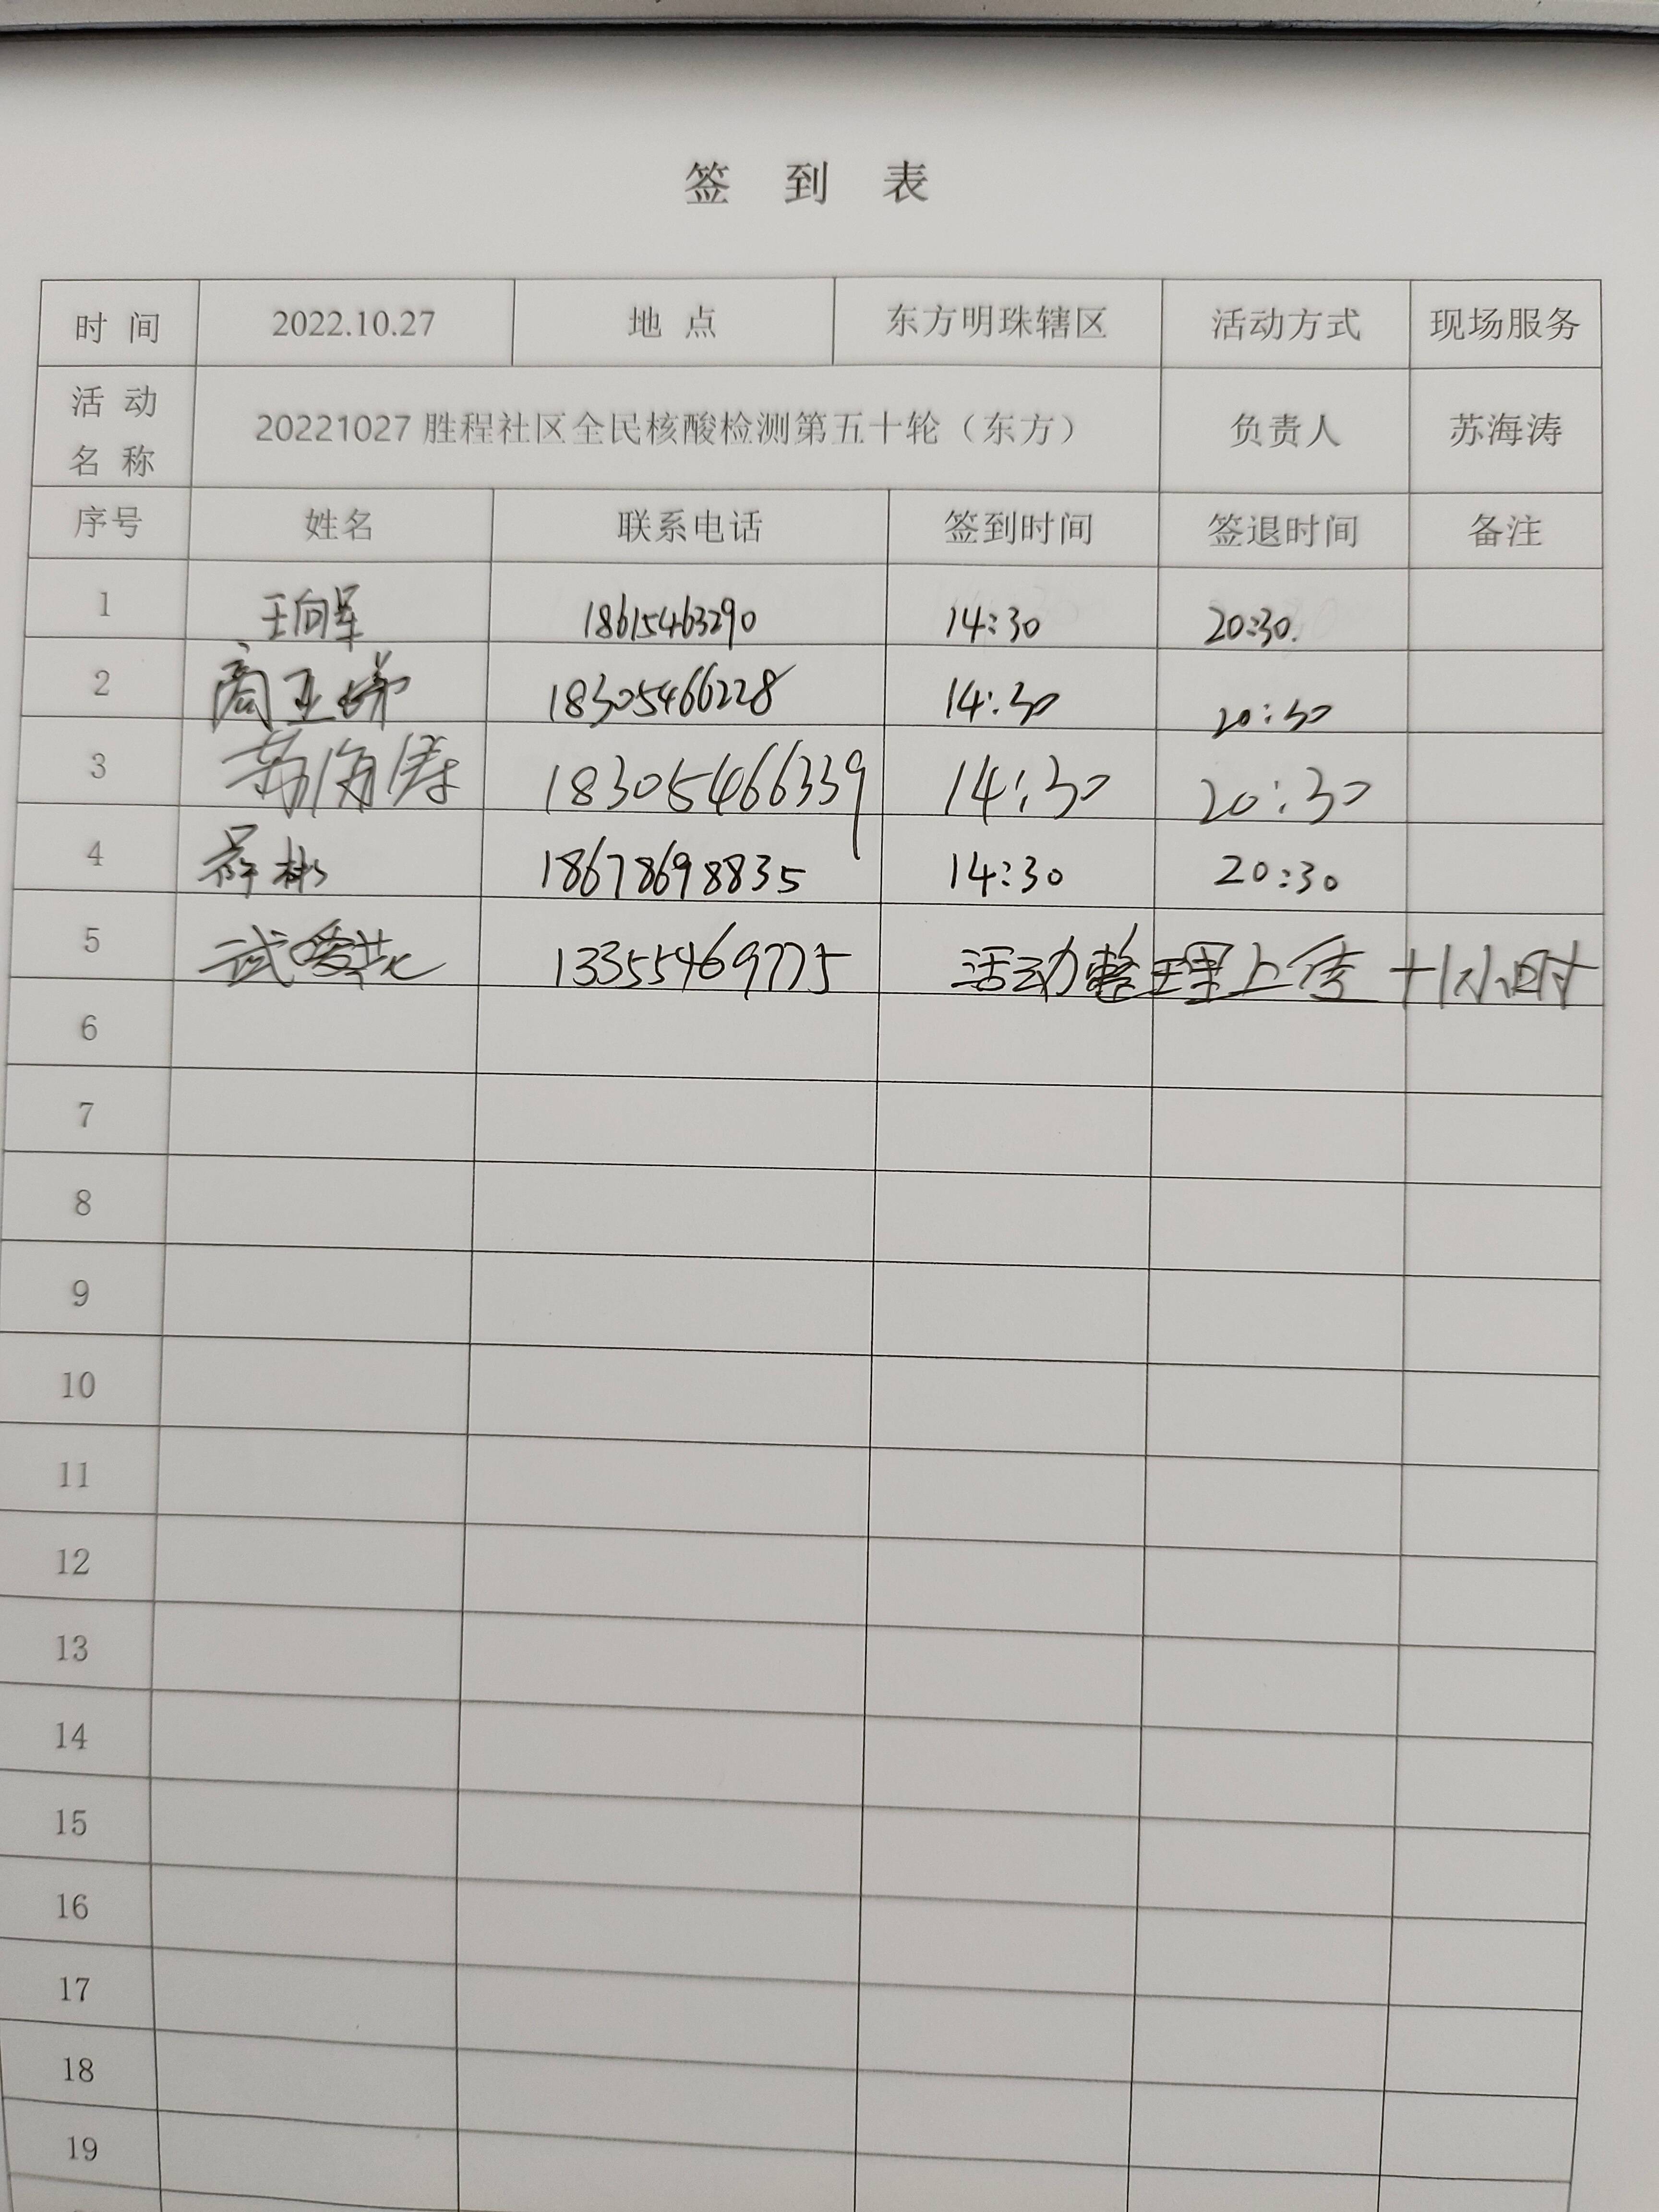 签 到 表
时 间 2022.10.27 地 点 东方明珠辖区 活动方式 现场服务
活 动 名 称 20221027 胜程社区全民核酸检测第五十轮（东方） 负责人 苏海涛
序号 姓名 联系电话 签到时间 签退时间 备注
1 王向军 18615463290 14:30 20:30.
2 商亚娣 18305466228 14:30 20:30
3 苏海涛 18305466339 14:30 20:30
4 18678698835 14:30 20:30
5 13355469775 活动整理上传 +1小时
6
7
8
9
10
11
12
13
14
15
16
17
18
19